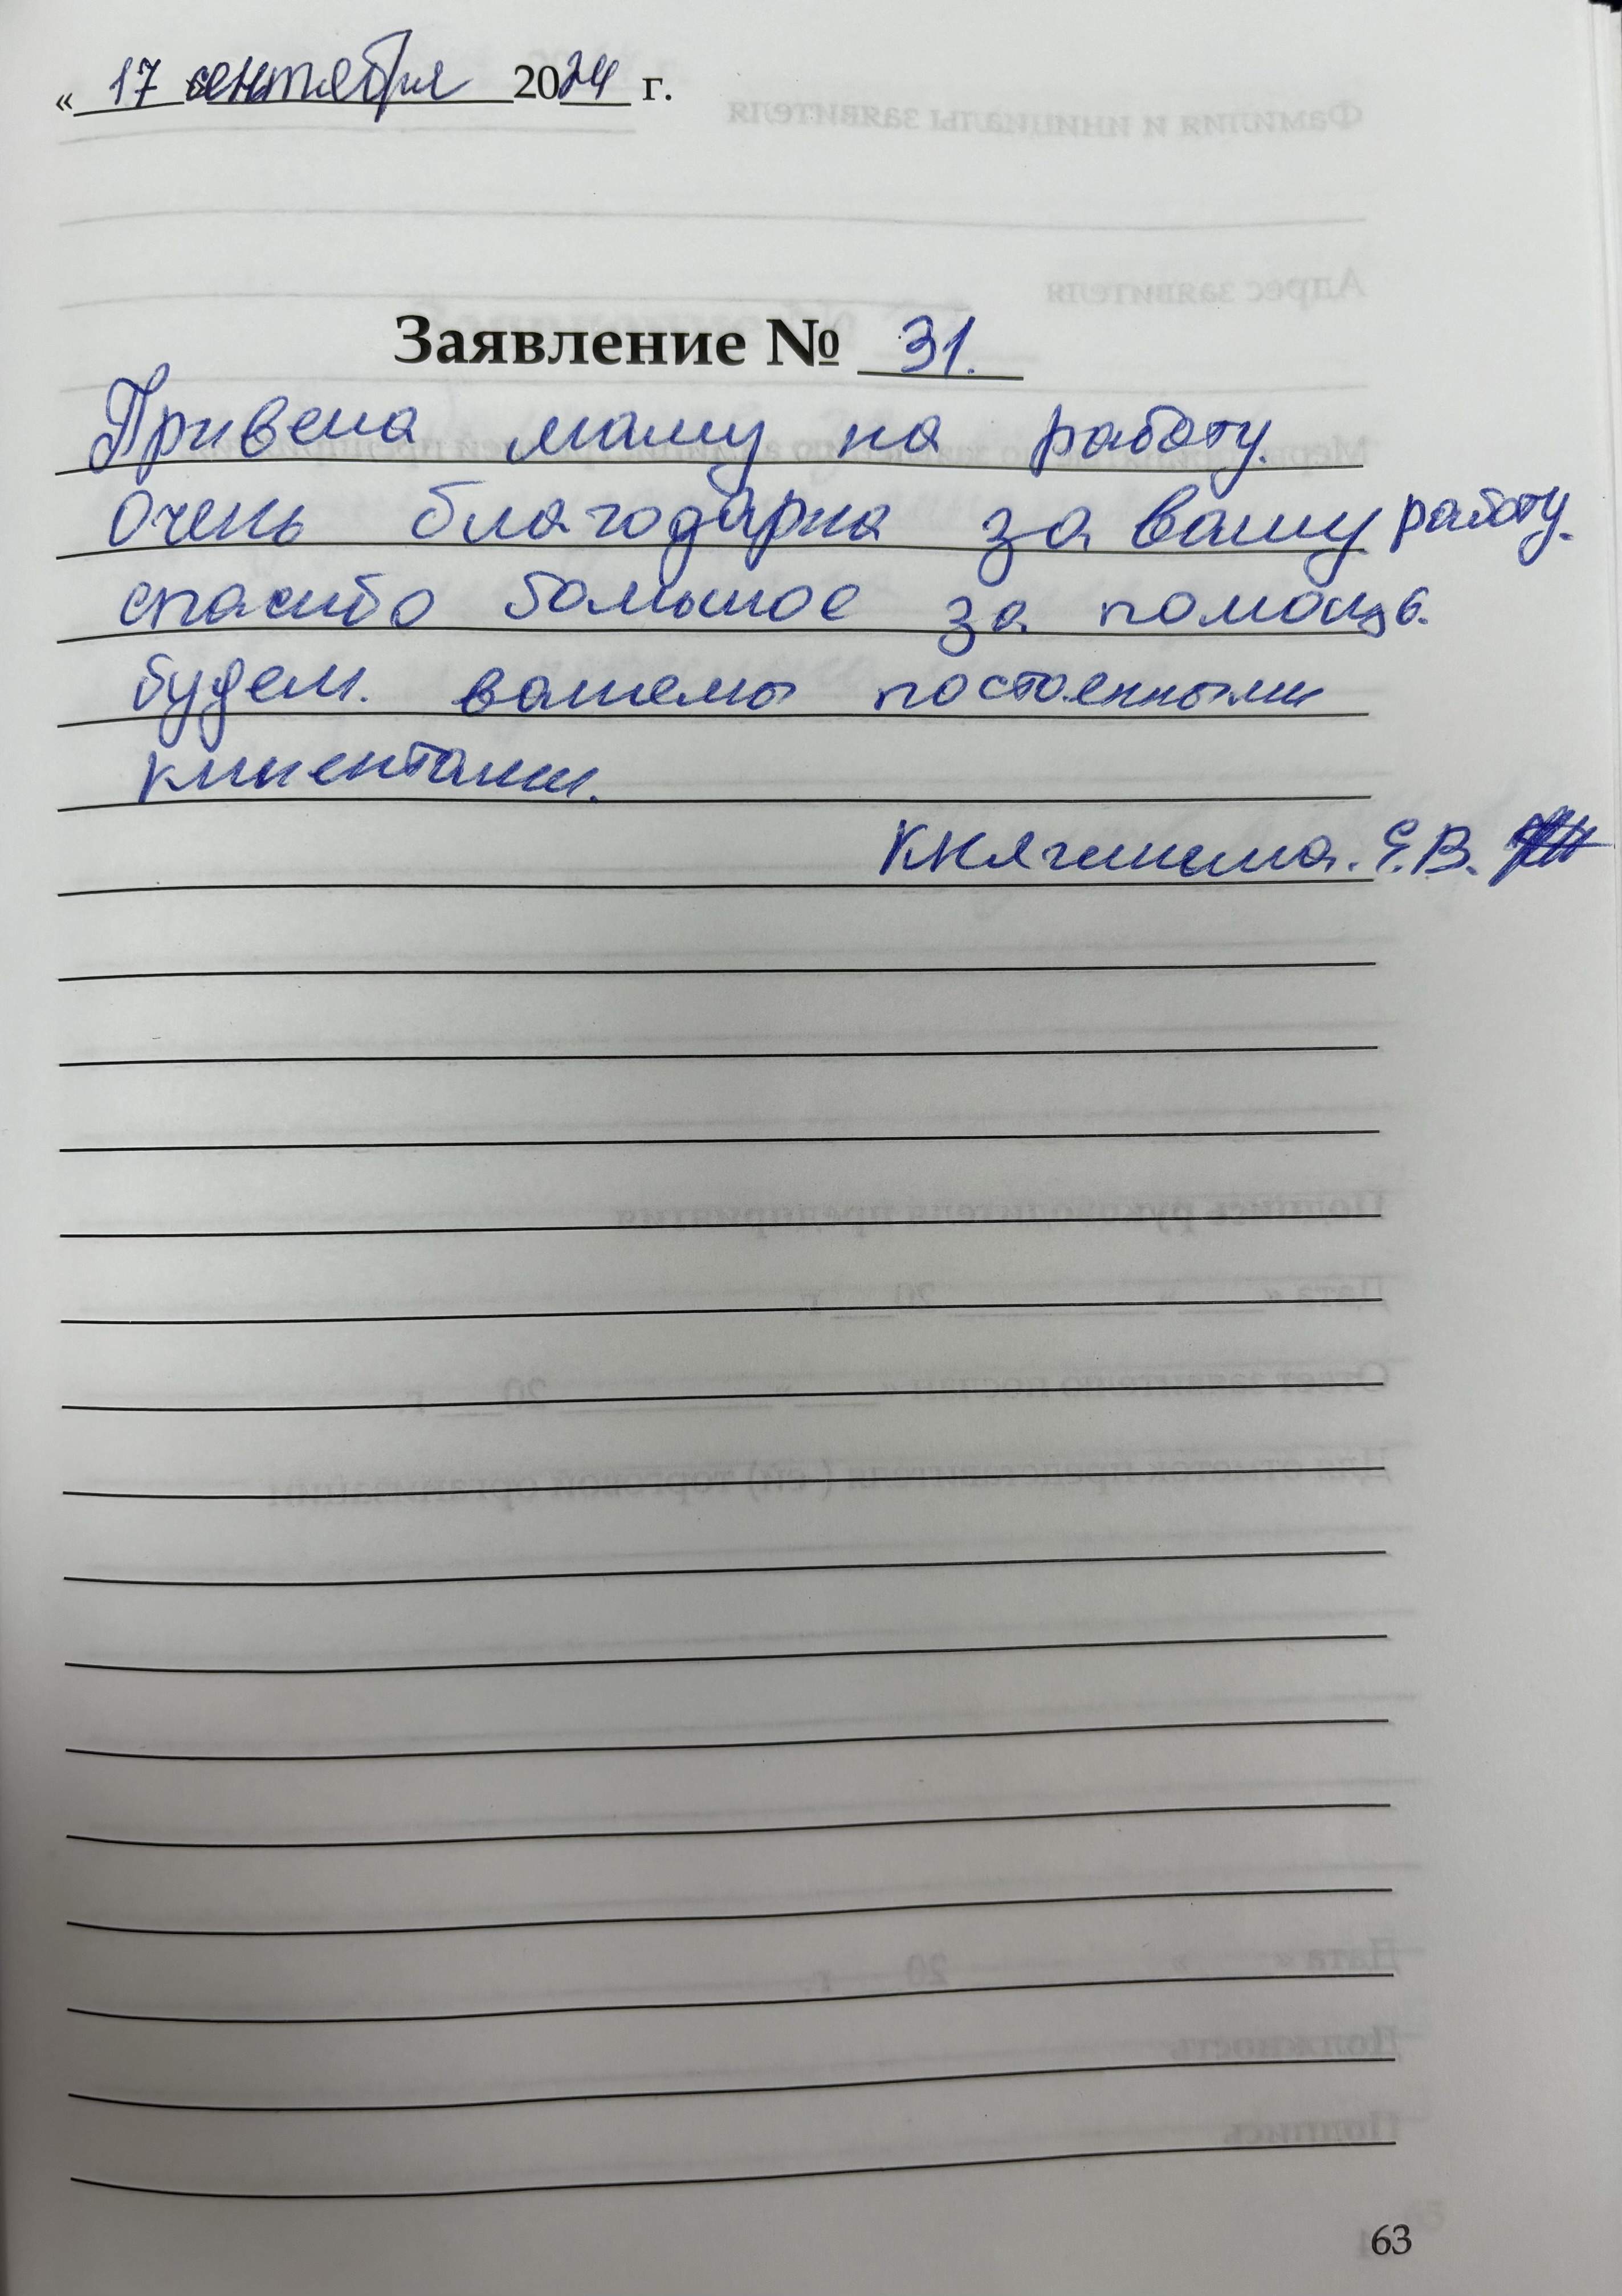 « 17 сентября 2024 г.
Заявление № 31.
Привела маму на работу.
Очень благодарна за вашу работу.
спасибо большое за помощь.
будем. вашемы постоенными
клиентами.
Е.В.
63